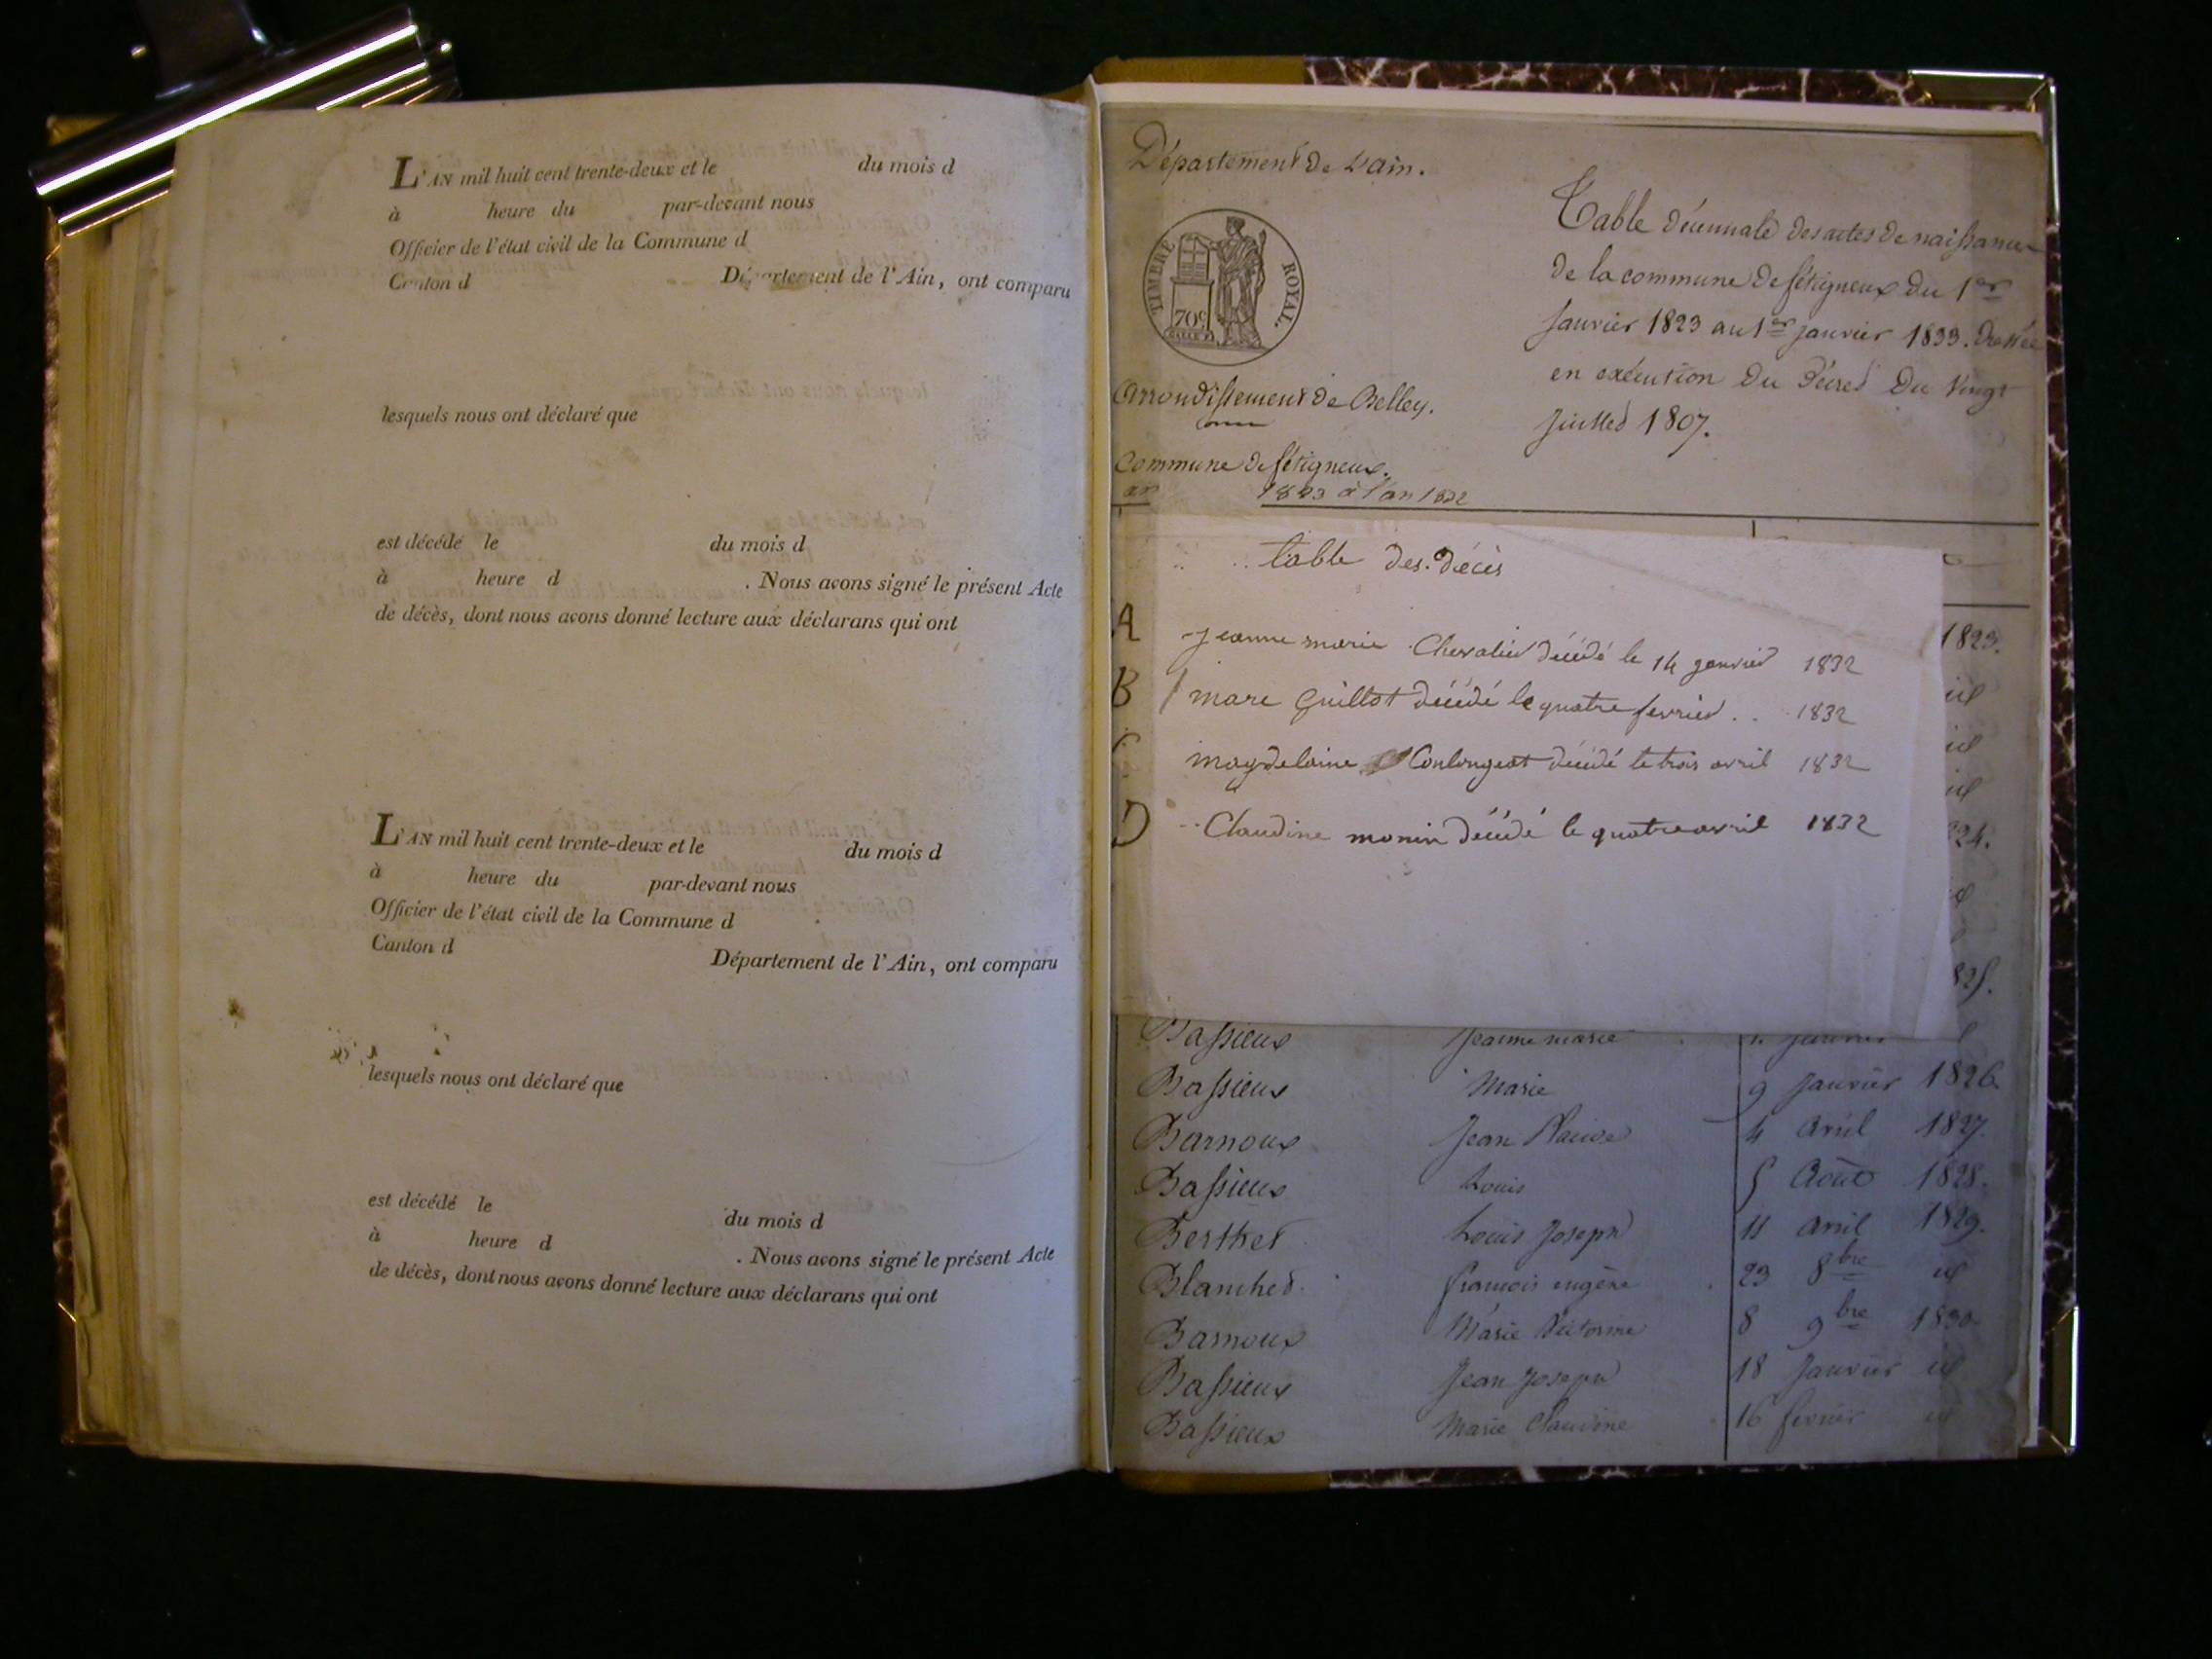 L'AN mil huit cent trente-deux et le du mois d
à heure du par-devant nous
Officier de l'état civil de la Commune d
Canton d Département de l'Ain, ont comparu
lesquels nous ont déclaré que
est décédé le du mois d
à heure d . Nous avons signé le présent Acte
de décès, dont nous avons donné lecture aux déclarans qui ont
L'AN mil huit cent trente-deux et le du mois d
à heure du par-devant nous
Officier de l'état civil de la Commune d
Canton d Département de l'Ain, ont comparu
lesquels nous ont déclaré que
est décédé le du mois d
à heure d . Nous avons signé le présent Acte
de décès, dont nous avons donné lecture aux déclarans qui ont
Département de L'ain.
TIMBRE ROYAL.
70c
Arrondissement de Belley.
Commune de Seligneux.
an 1823 à l'an 1832
Table décennale des actes de naissance
de la commune de Seligneux du 1er
Janvier 1823 au 1er janvier 1833. Dressée
en exécution du Décret du Vingt
juillet 1807.
table des décès
A jeanne marie Chevalier décédé le 14 janvier 1832
B marc Guillot décédé le quatre fevrier .. 1832
C magdelaine décédé le trois avril 1832
D Claudine monin décédé le quatre avril 1832
1823.
id
id
id
24.
825.
Bassieux Jeanne marie janvier
Bassieux Marie 9 janvier 1826
Barnoux Jean Claude 4 avril 1827.
Bassieux Louis 5 Août 1828.
Berthet Louis Joseph 11 avril 1829.
Blanchet françois eugène 23 8bre id
Barnoux Marie Victorine 8 9bre 1830
Bassieux Jean Joseph 18 Janvier id
Bassieux Marie Claudine 16 fevrier id